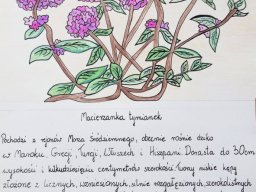 Macierzanka tymianek
Pochodzi z rejonów Morza Śródziemnego, obecnie rośnie dziko
w Maroku, Grecji, Turcji, Włoszech i Hiszpanii. Dorasta do 30cm
wysokości i kilkudziesięciu centymetrów szerokości. Tworzy niskie kępy
złożone z licznych, wzniesionych, silnie rozgałęzionych, szarokolistnych